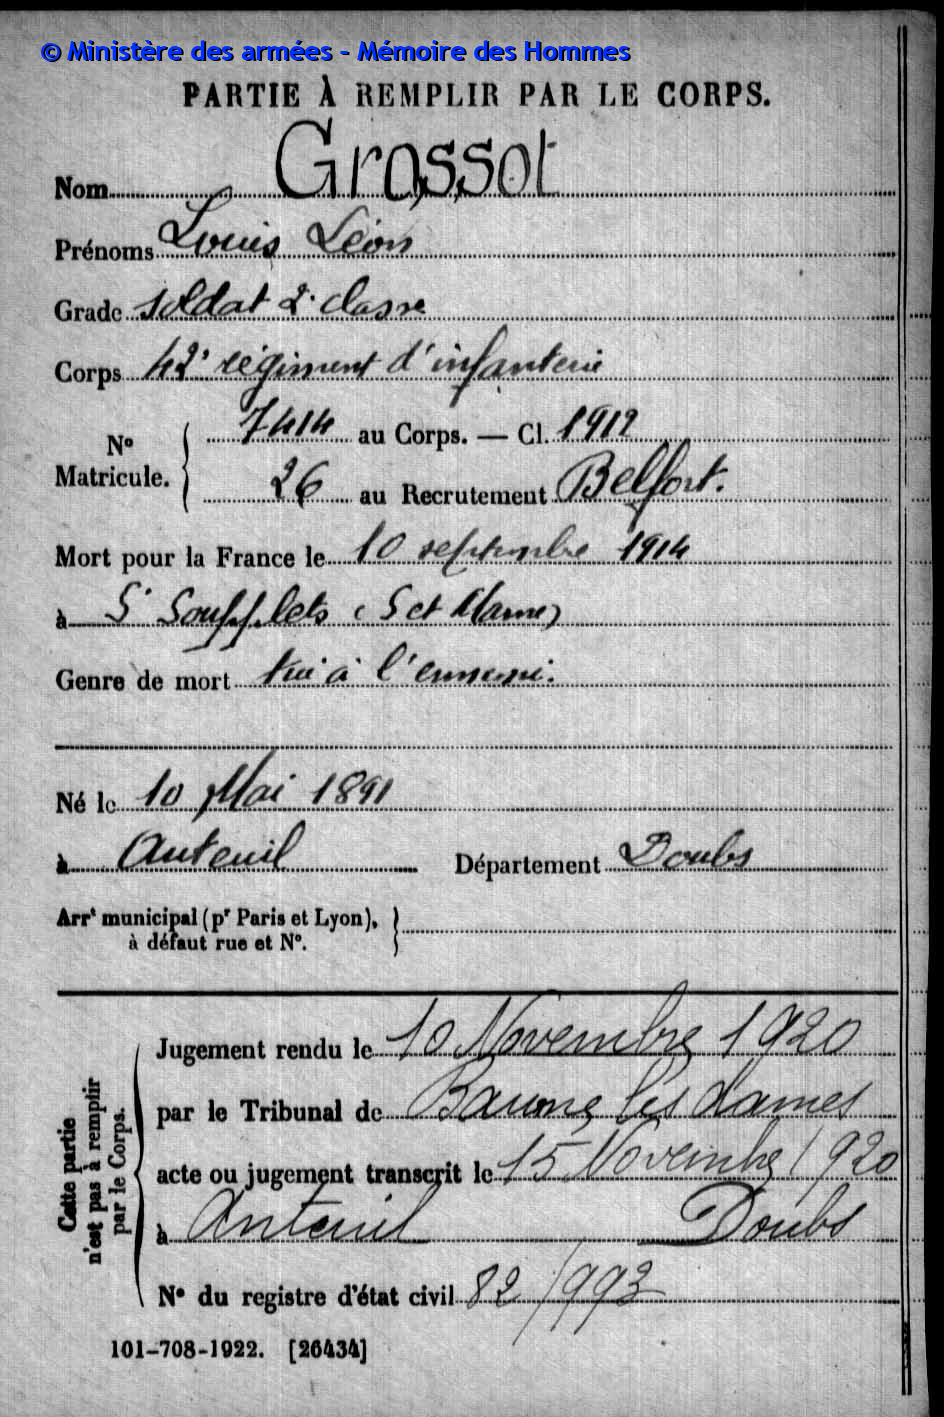 © Ministère des armées - Mémoire des Hommes
PARTIE À REMPLIR PAR LE CORPS.
Nom Grossot
Prénoms Louis Léon
Grade soldat 2e classe
Corps 42e régiment d'infanterie
N° Matricule. { 7414 au Corps. — Cl. 1912
26 au Recrutement Belfort.
Mort pour la France le 10 septembre 1914
à St Soufflets (S et Marne)
Genre de mort tué à l'ennemi.
Né le 10 Mai 1891
à Auteuil Département Doubs
Arrt municipal (pr Paris et Lyon), }
à défaut rue et N°.
Cette partie
n'est pas à remplir
par le Corps.
Jugement rendu le 10 Novembre 1920
par le Tribunal de Baume les Dames
acte ou jugement transcrit le 15 Novembre 1920
à Auteuil Doubs
N° du registre d'état civil 82/993
101-708-1922. [26434]